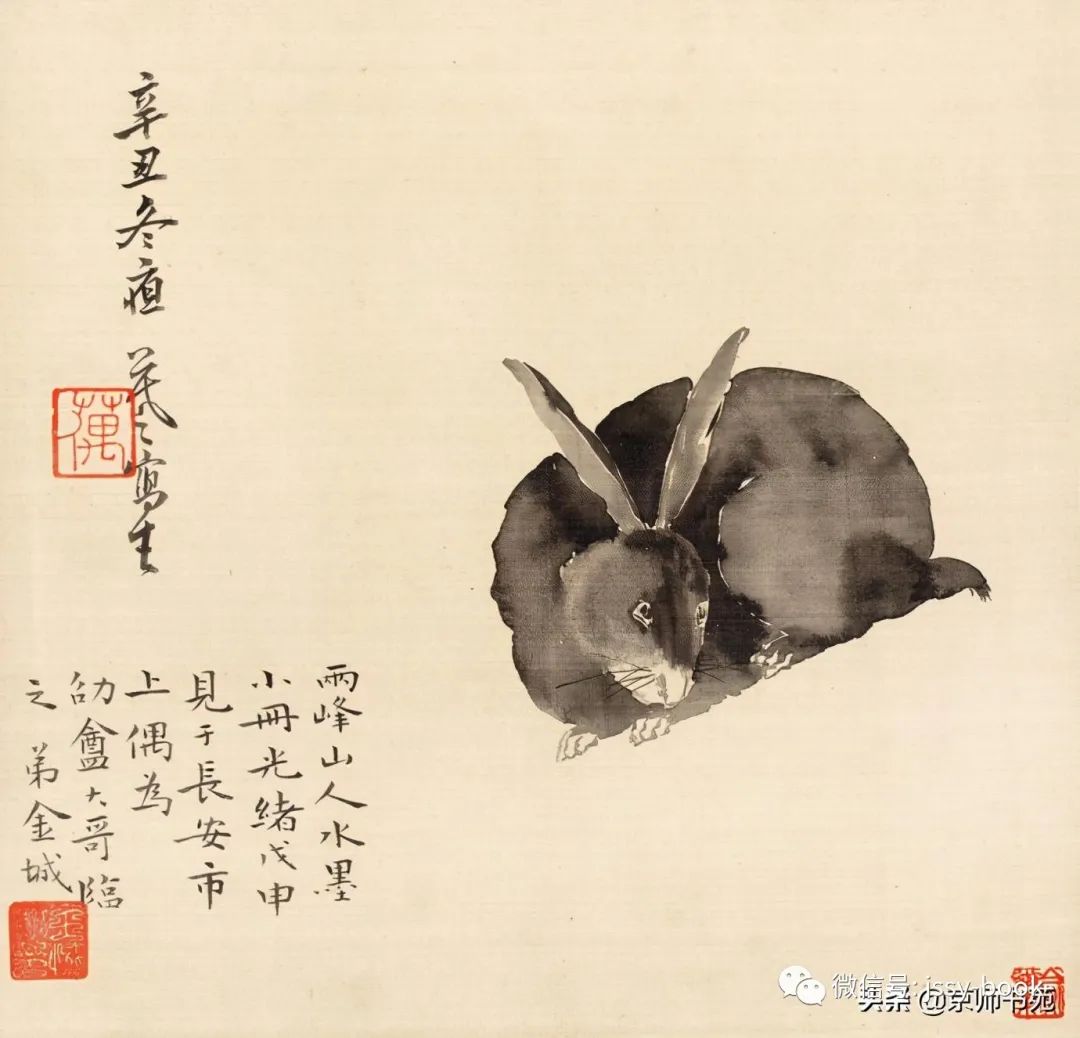 辛丑冬 寫生
兩峰山人水墨
小冊光緒戊申
見于長安市
上偶為
劭盦大哥臨
之 弟金城
微信号: jssy_book
头条 @京师书苑